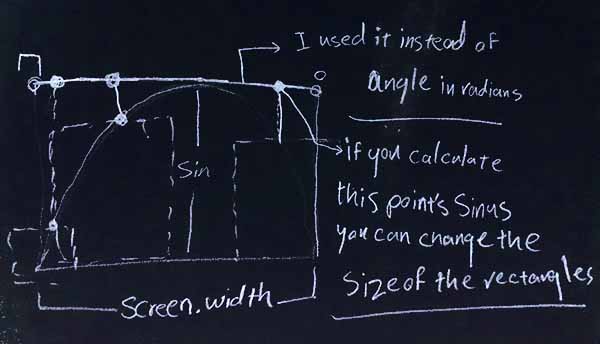 π
0
I used it instead of
angle in radians
Sin
if you calculate
this point's Sinus
you can change the
size of the rectangles
Screen.width